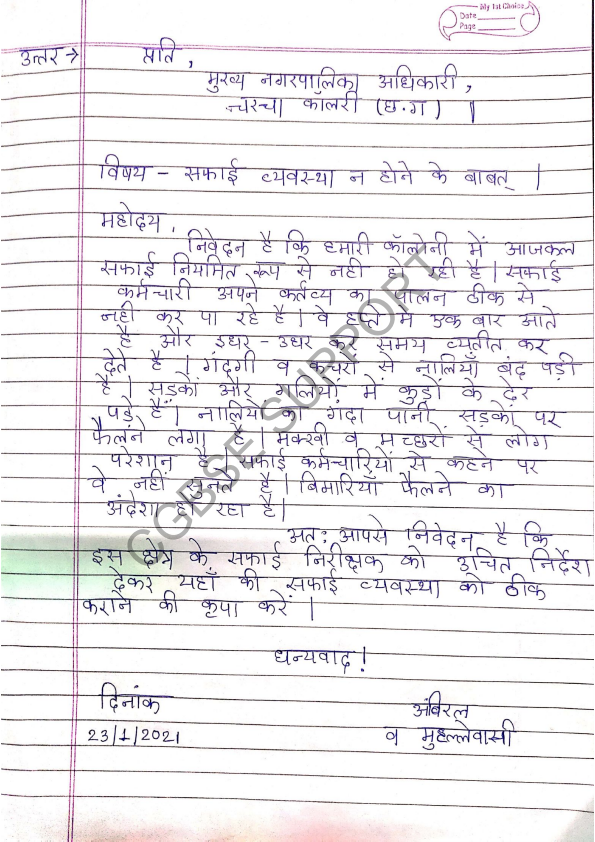 My 1st Choice
Date
Page
उत्तर → प्रति,
मुख्य नगरपालिका अधिकारी,
चरचा कालरी (छ.ग) |
विषय - सफाई व्यवस्था न होने के बाबत् |
महोदय,
निवेदन है कि हमारी कॉलोनी में आजकल
सफाई नियमित रूप से नही हो रही है | सफाई
कर्मचारी अपने कर्तव्य का पालन ठीक से
नही कर पा रहे है | वे हफ्ते मे एक बार आते
है और इधर-उधर कर समय व्यतीत कर
देते है | गंदगी व कचरो से नालियाँ बंद पड़ी
है | सड़कों और गलियों में कुड़ों के ढेर
पड़े हैं | नालियों का गंदा पानी सड़कों पर
फैलने लगा है | मक्खी व मच्छरों से लोग
परेशान है सफाई कर्मचारियों से कहने पर
वे नहीं सुनते है | बिमारियाँ फैलने का
अंदेशा हो रहा है |
अतः आपसे निवेदन है कि
इस क्षेत्र के सफाई निरीक्षक को उचित निर्देश
देकर यहाँ की सफाई व्यवस्था को ठीक
कराने की कृपा करें |
धन्यवाद !
दिनांक अविरल
23/1/2021 व मुहल्लेवासी
CGBSE SUPPORT